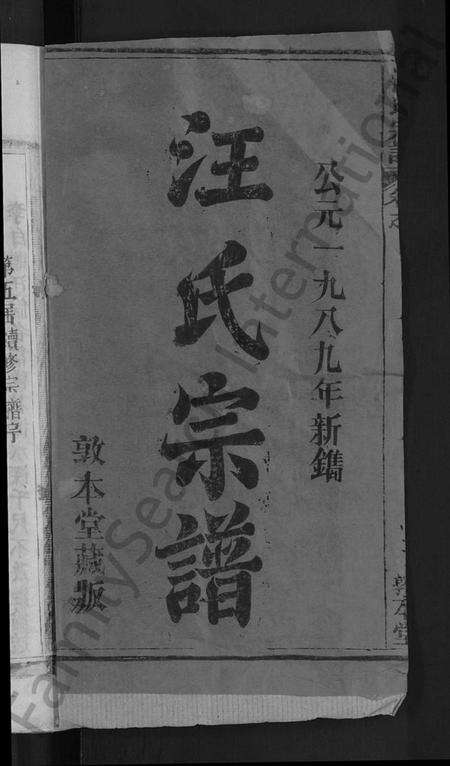 公元一九八九年新鐫
汪氏宗譜
敦本堂藏版
敦本堂
第五届續修宗譜序
FamilySearch International